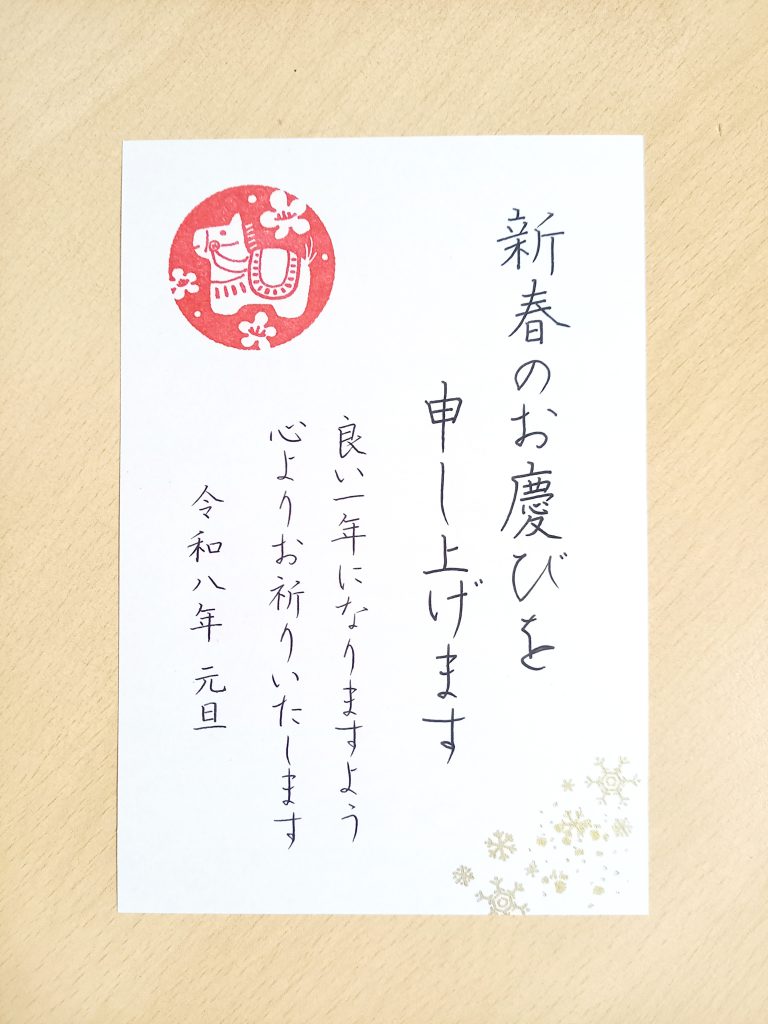 新春のお慶びを
申し上げます
良い一年になりますよう
心よりお祈りいたします
令和八年 元旦